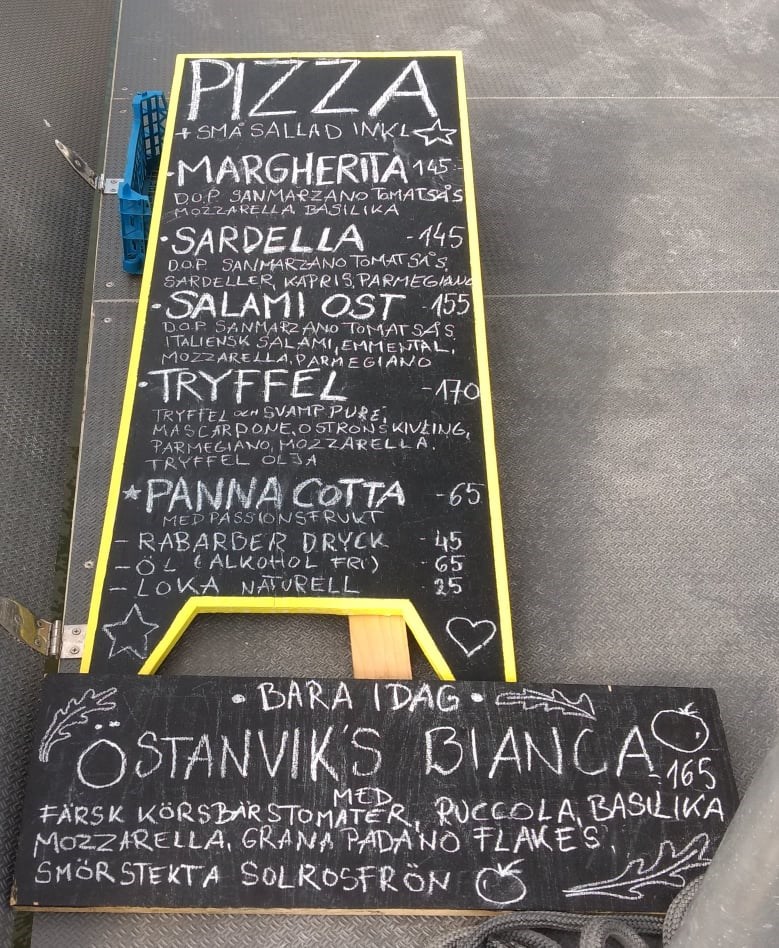 PIZZA
+ SMÅ SALLAD INKL
·MARGHERITA 145:-
D.O.P. SANMARZANO TOMATSÅS
MOZZARELLA BASILIKA
·SARDELLA -145
D.O.P. SANMARZANO TOMATSÅS,
SARDELLER, KAPRIS, PARMEGIANO
·SALAMI OST -155
D.O.P. SANMARZANO TOMATSÅS
ITALIENSK SALAMI, EMMENTAL,
MOZZARELLA, PARMEGIANO
·TRYFFEL -170
TRYFFEL OCH SVAMP PURÉ,
MASCARPONE, OSTRONSKIVLING,
PARMEGIANO, MOZZARELLA.
TRYFFEL OLJA
* PANNA COTTA -65
MED PASSIONSFRUKT
- RABARBER DRYCK -45
- ÖL (ALKOHOL FRI) -65
- LOKA NATURELL 25
• BARA IDAG •
ÖSTANVIK'S BIANCA -165
MED
FÄRSK KÖRSBÄRSTOMATER, RUCCOLA, BASILIKA
MOZZARELLA, GRANA PADANO FLAKES,
SMÖRSTEKTA SOLROSFRÖN